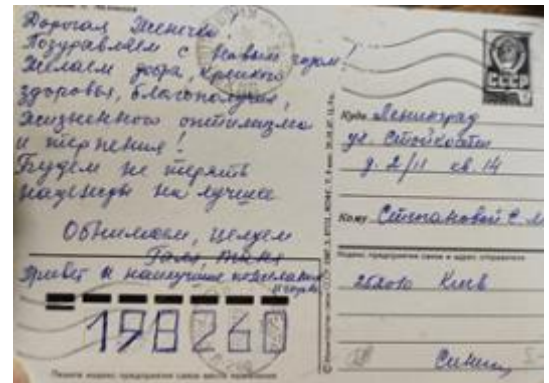 Дорогая Женечка!
Поздравляем с Новым годом!
Желаем добра, крепкого
здоровья, благополучия,
жизненного оптимизма
и терпения!
Будем не терять
надежды на лучшее
Обнимаем, целуем
Галя, Таня
Привет и наилучшие пожелания
СССР
Куда Ленинград
ул. Стойкости
д. 2/11 кв 14
Кому Степановой Е. М
Индекс предприятия связи и адрес отправителя
252010 Киев
198260
Пишите индекс предприятия связи места назначения